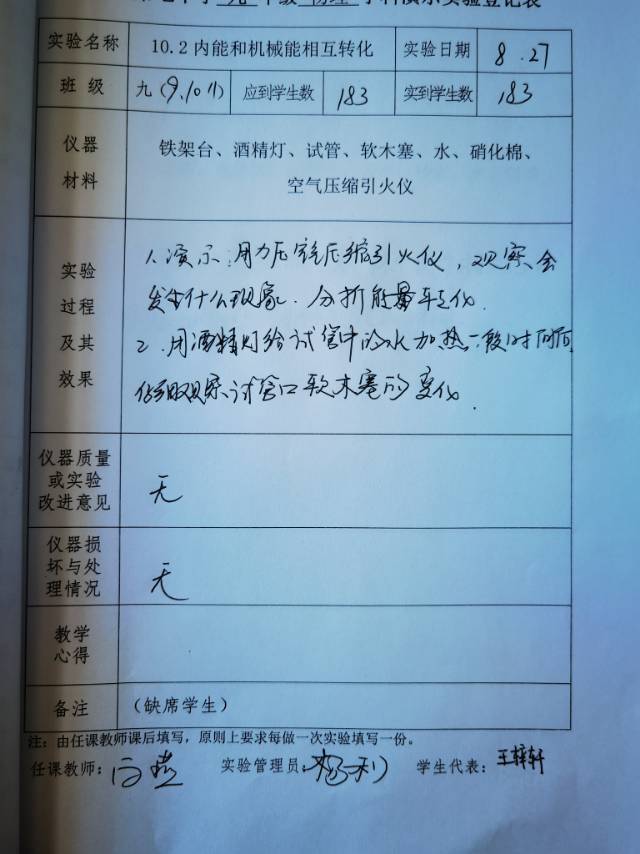 九年级 物理 学科演示实验登记表
实验名称 10.2内能和机械能相互转化 实验日期 8.27
班 级 九(9、10、11) 应到学生数 183 实到学生数 183
仪器
材料
铁架台、酒精灯、试管、软木塞、水、硝化棉、
空气压缩引火仪
实验
过程
及其
效果
1、演示:用力压空气压缩引火仪,观察会
发生什么现象.分析能量转化.
2、用酒精灯给试管中的水加热一段时间后
仔细观察试管口软木塞的变化.
仪器质量
或实验
改进意见
无
仪器损
坏与处
理情况
无
教学
心得
备注 (缺席学生)
注:由任课教师课后填写,原则上要求每做一次实验填写一份。
任课教师: 实验管理员: 杨利 学生代表: 王梓轩